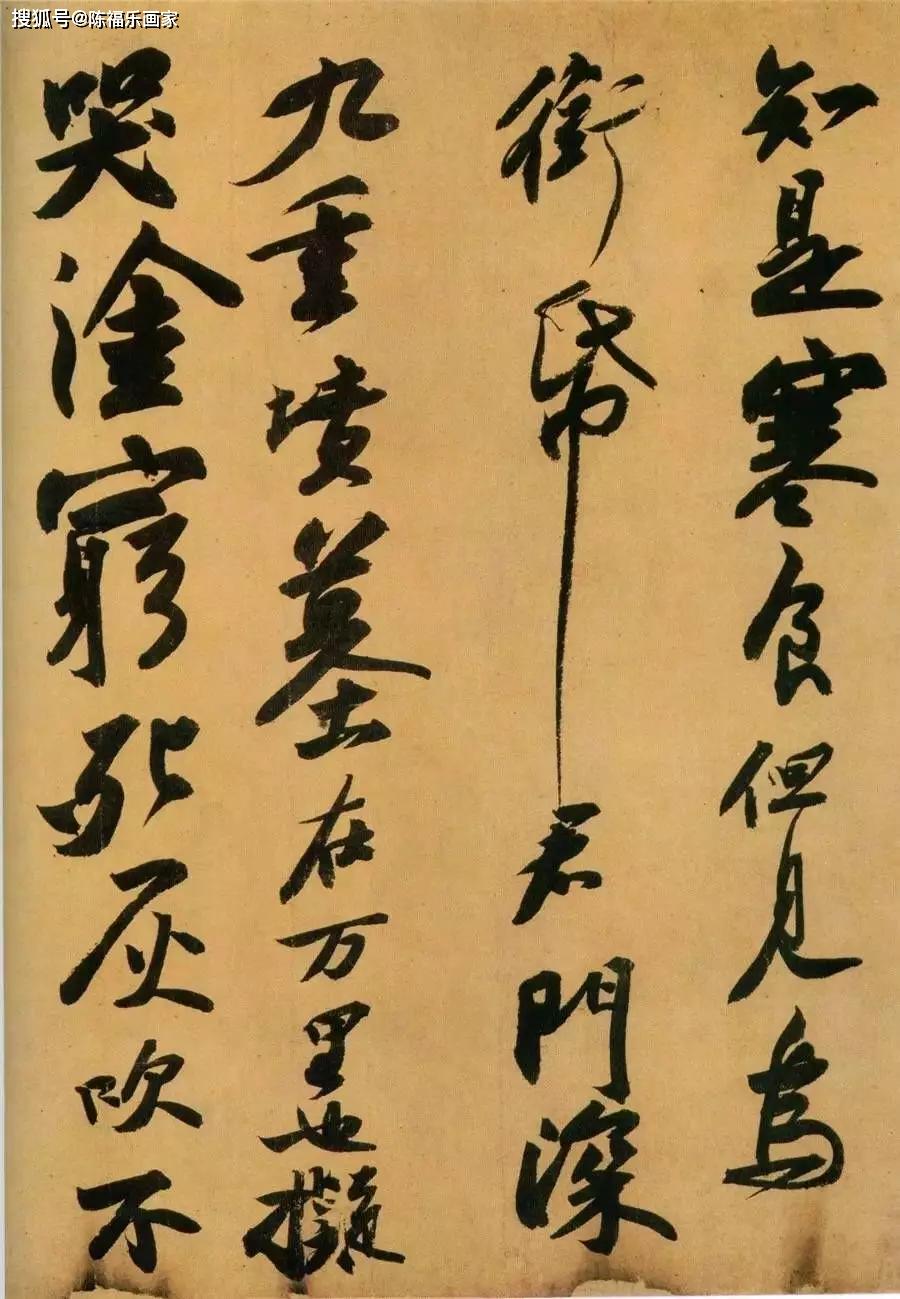 搜狐号@陈福乐画家
知是寒食但見烏
銜帋君門深
九重墳墓在万里也擬
哭塗窮死灰吹不